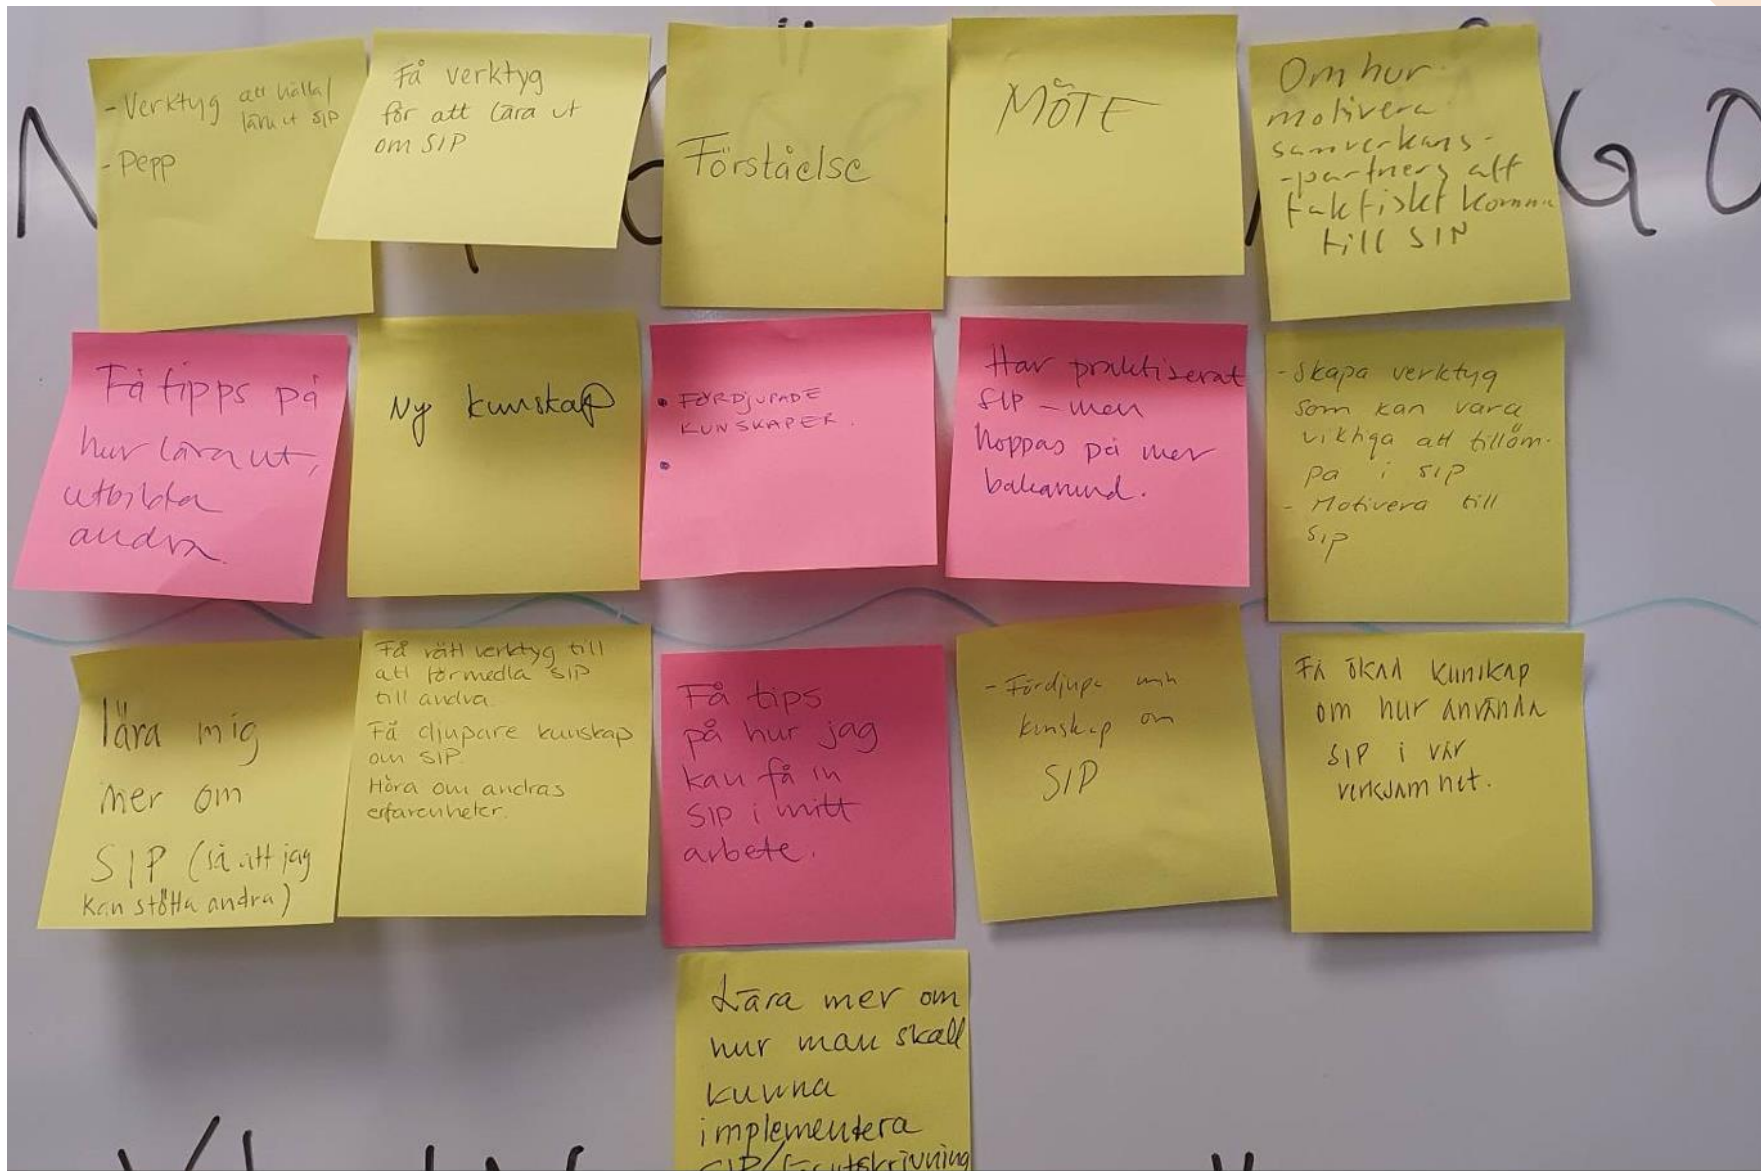 - Verktyg att hålla/
lära ut SIP
- Pepp
Få verktyg
för att lära ut
om SIP
Förståelse
MÖTE
Om hur
motivera
samverkans-
-partners att
faktiskt komma
till SIP
Få tipps på
hur lära ut,
utbilda
andra
Ny kunskap
• FÖRDJUPADE
KUNSKAPER.
•
Har praktiserat
SIP - men
hoppas på mer
- Skapa verktyg
som kan vara
viktiga att tilläm-
pa i SIP
- Motivera till
SIP
lära mig
mer om
SIP (så att jag
kan stötta andra)
Få rätt verktyg till
att förmedla SIP
till andra.
Få djupare kunskap
om SIP.
Höra om andras
erfarenheter.
Få tips
på hur jag
kan få in
SIP i mitt
arbete.
- Fördjupa min
kunskap om
SIP
Få ökad kunskap
om hur använda
SIP i vår
verksamhet.
Lära mer om
hur man skall
kunna
implementera
SIP/